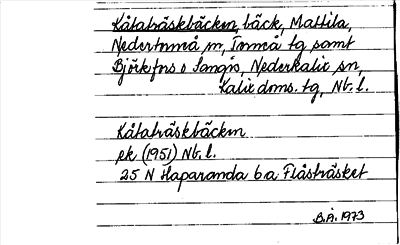 Kåtaträskbäcken, bäck, Mattila,
Nedertorneå sn, Torneå tg samt
Björkfors o Sangis, Nederkalix sn,
Kalix doms. tg, Nb. l.
Kåtaträskbäcken
ek (1951) Nb. l.
25 N Haparanda 6a Flåsträsket
B.Å. 1973